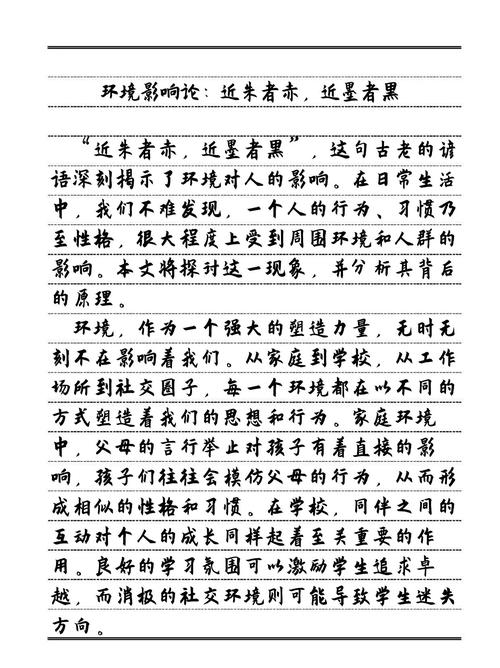 环境影响论：近朱者赤，近墨者黑
“近朱者赤，近墨者黑”，这句古老的谚
语深刻揭示了环境对人的影响。在日常生活
中，我们不难发现，一个人的行为、习惯乃
至性格，很大程度上受到周围环境和人群的
影响。本文将探讨这一现象，并分析其背后
的原理。
环境，作为一个强大的塑造力量，无时无
刻不在影响着我们。从家庭到学校，从工作
场所到社交圈子，每一个环境都在以不同的
方式塑造着我们的思想和行为。家庭环境
中，父母的言行举止对孩子有着直接的影
响，孩子们往往会模仿父母的行为，从而形
成相似的性格和习惯。在学校，同伴之间的
互动对个人的成长同样起着至关重要的作
用。良好的学习氛围可以激励学生追求卓
越，而消极的社交环境则可能导致学生迷失
方向。